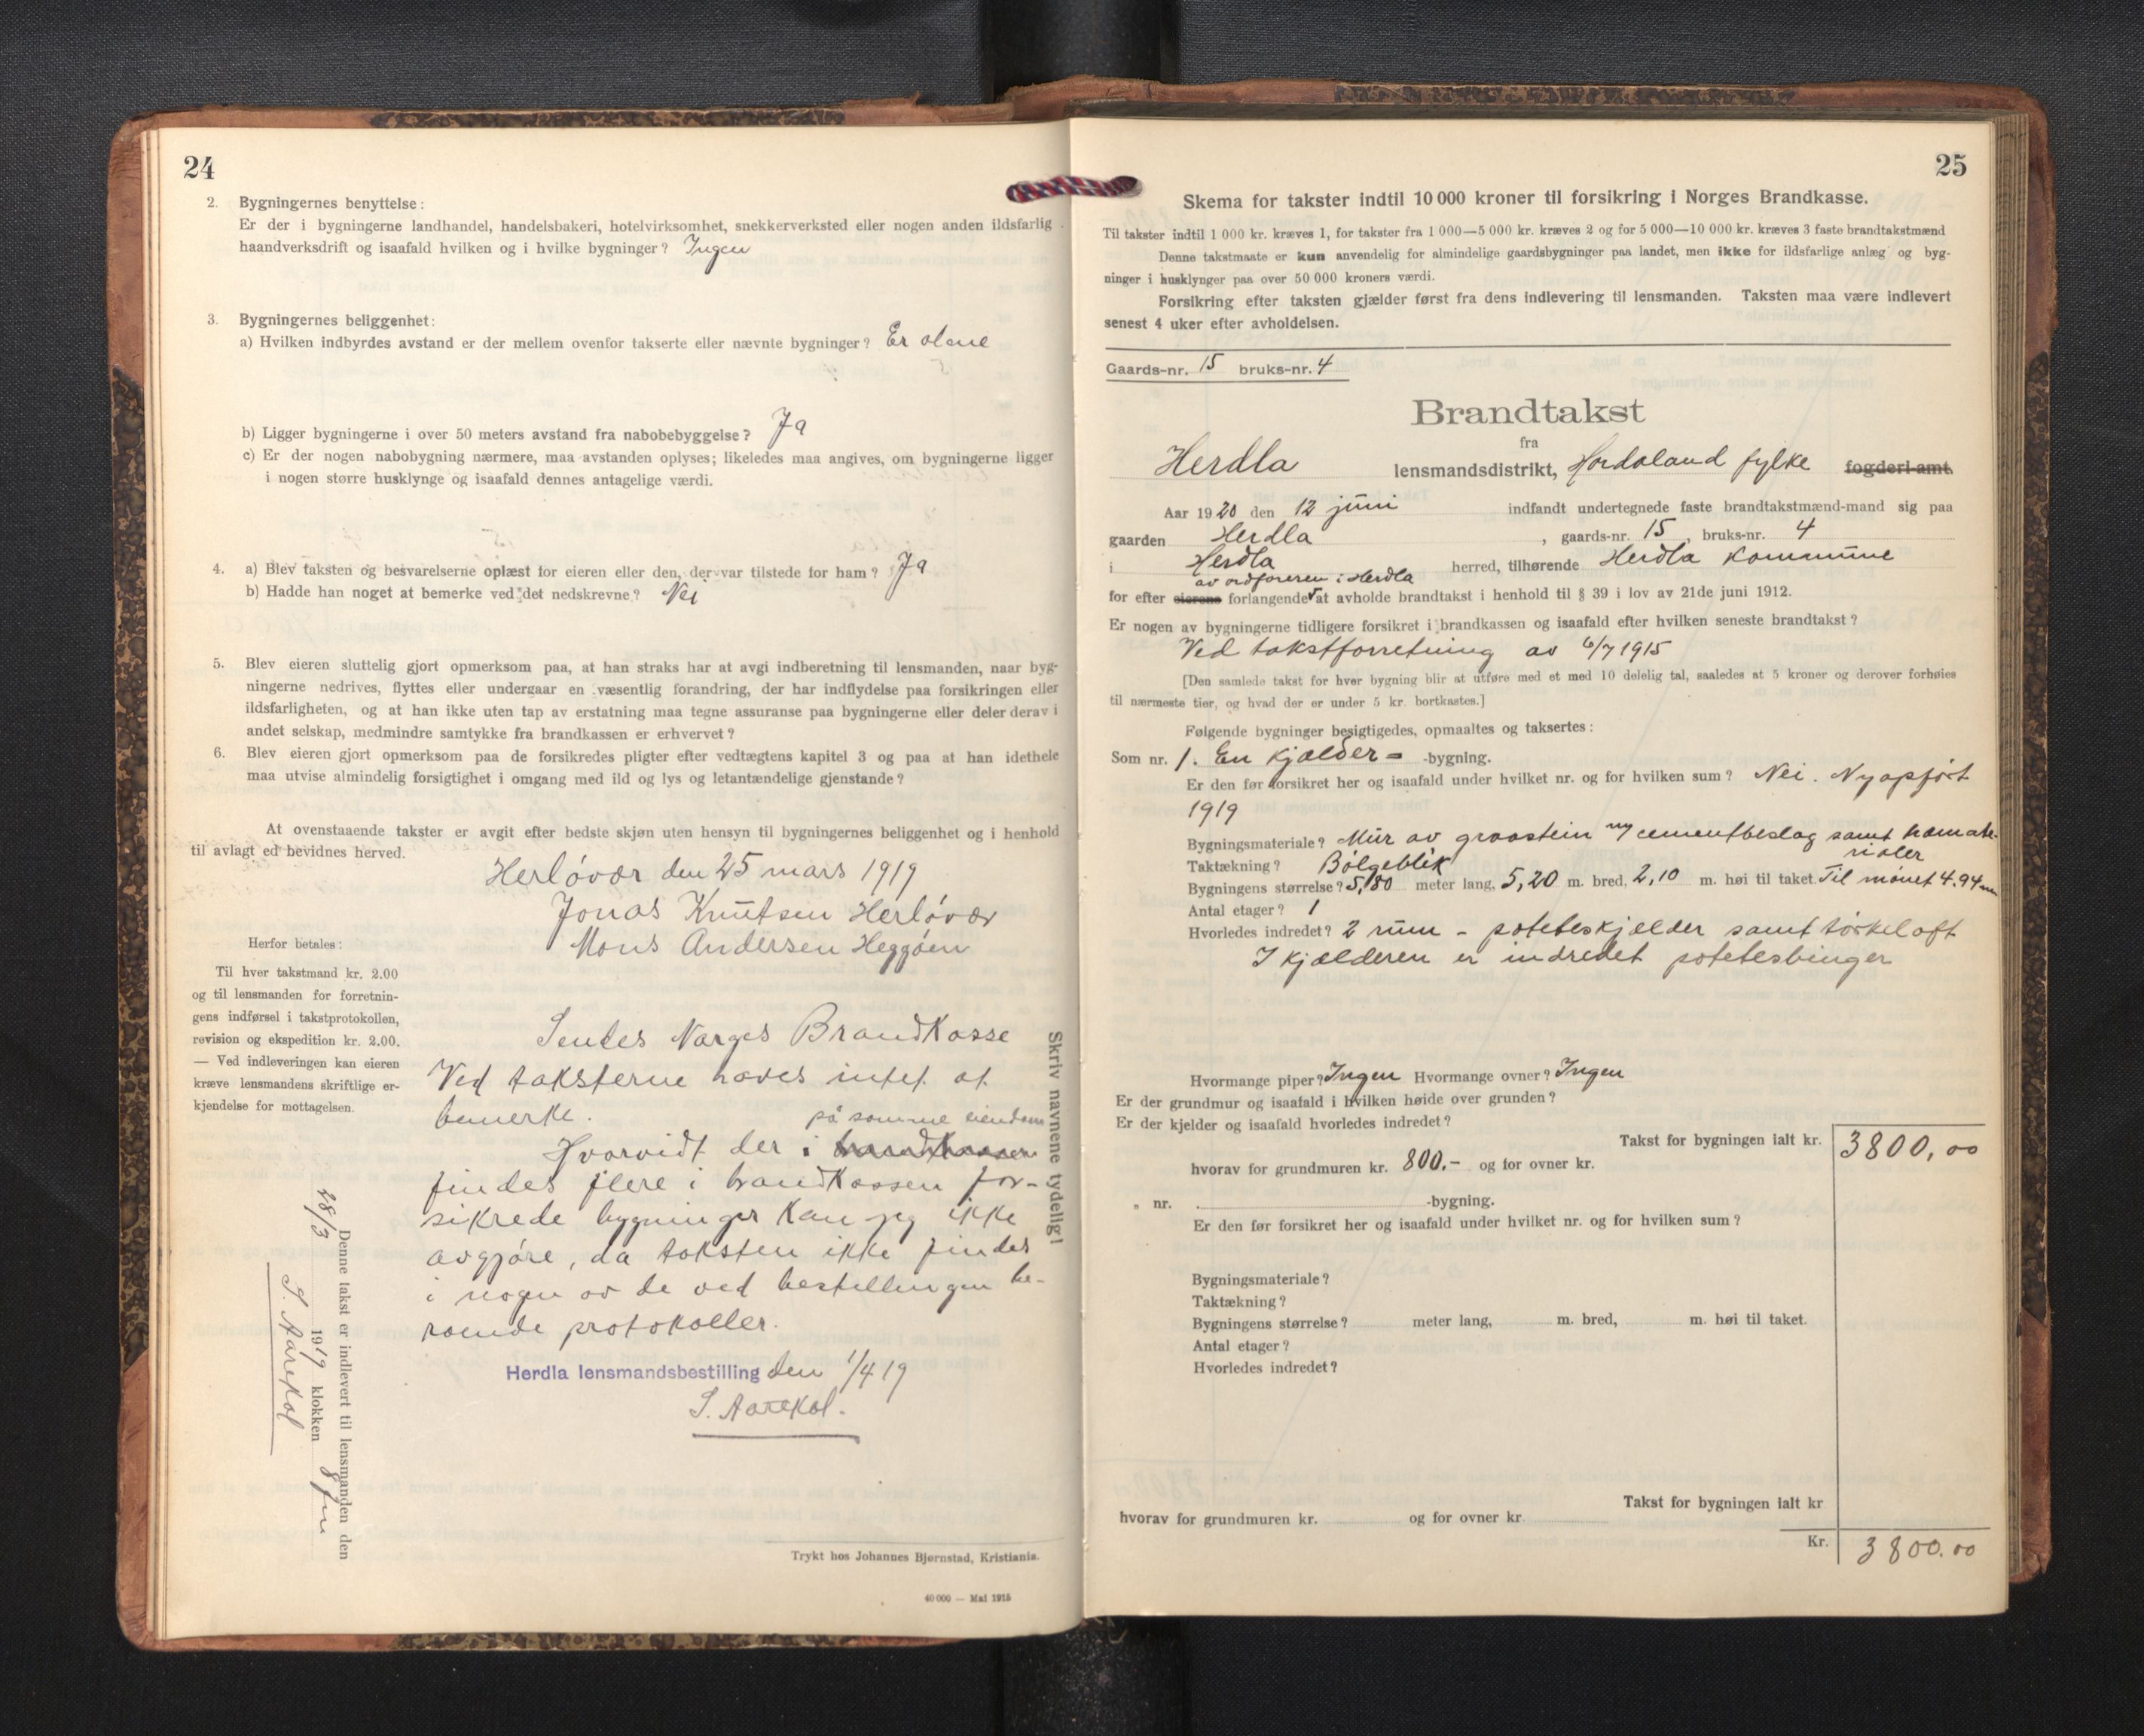 24
2. Bygningernes benyttelse:
Er der i bygningerne landhandel, handelsbakeri, hotelvirksomhet, snekkerverksted eller nogen anden ildsfarlig
haandverksdrift og isaafald hvilken og i hvilke bygninger? Ingen
3. Bygningernes beliggenhet:
a) Hvilken indbyrdes avstand er der mellem ovenfor takserte eller nævnte bygninger? Er alene
b) Ligger bygningerne i over 50 meters avstand fra nabobebyggelse? Ja
c) Er der nogen nabobygning nærmere, maa avstanden oplyses; likeledes maa angives, om bygningerne ligger
i nogen større husklynge og isaafald dennes antagelige værdi.
4. a) Blev taksten og besvarelserne oplæst for eieren eller den, der var tilstede for ham? Ja
b) Hadde han noget at bemerke ved det nedskrevne? Nei
5. Blev eieren sluttelig gjort opmerksom paa, at han straks har at avgi indberetning til lensmanden, naar byg-
ningerne nedrives, flyttes eller undergaar en væsentlig forandring, der har indflydelse paa forsikringen eller
ildsfarligheten, og at han ikke uten tap av erstatning maa tegne assuranse paa bygningerne eller deler derav i
andet selskap, medmindre samtykke fra brandkassen er erhvervet?
6. Blev eieren gjort opmerksom paa de forsikredes pligter efter vedtægtens kapitel 3 og paa at han idethele
maa utvise almindelig forsigtighet i omgang med ild og lys og letantændelige gjenstande?
At ovenstaaende takster er avgit efter bedste skjøn uten hensyn til bygningernes beliggenhet og i henhold
til avlagt ed bevidnes herved.
Herløvær den 25 mars 1919
Jonas Knutsen Herløvær
Mons Andersen Heggøen
Herfor betales:
Til hver takstmand kr. 2.00
og til lensmanden for forretnin-
gens indførsel i takstprotokollen,
revision og ekspedition kr. 2.00.
— Ved indleveringen kan eieren
kræve lensmandens skriftlige er-
kjendelse for mottagelsen.
Sendes Norges Brandkasse
Ved taksterne haves intet at
bemerke.
på samme eiendom
Hvorvidt der i brandkassen
findes flere i brandkassen for-
sikrede bygninger kan jeg ikke
avgjøre, da taksten ikke findes
i nogen av de ved bestillingen be-
roende protokoller.
Herdla lensmandsbestilling den 1/4 19
S. Aarekol.
Skriv navnene tydelig!
Denne takst er indlevert til lensmanden den
28/3 1919 klokken 8 fm
S. Aarekol
Trykt hos Johannes Bjørnstad, Kristiania.
40 000 — Mai 1915
25
Skema for takster indtil 10 000 kroner til forsikring i Norges Brandkasse.
Til takster indtil 1 000 kr. kræves 1, for takster fra 1 000—5 000 kr. kræves 2 og for 5 000—10 000 kr. kræves 3 faste brandtakstmænd
Denne takstmaate er kun anvendelig for almindelige gaardsbygninger paa landet, men ikke for ildsfarlige anlæg og byg-
ninger i husklynger paa over 50 000 kroners værdi.
Forsikring efter taksten gjælder først fra dens indlevering til lensmanden. Taksten maa være indlevert
senest 4 uker efter avholdelsen.
Gaards-nr. 15 bruks-nr. 4
Brandtakst
fra
Herdla lensmandsdistrikt, Hordaland fylke fogderi-amt.
Aar 1920 den 12 juni indfandt undertegnede faste brandtakstmænd-mand sig paa
gaarden Herdla, gaards-nr. 15, bruks-nr. 4
i Herdla herred, tilhørende Herdla kommune
av ordføreren i Herdla
for efter eierens forlangende at avholde brandtakst i henhold til § 39 i lov av 21de juni 1912.
Er nogen av bygningerne tidligere forsikret i brandkassen og isaafald efter hvilken seneste brandtakst?
Ved takstforretning av 6/7 1915
[Den samlede takst for hver bygning blir at utføre med et med 10 delelig tal, saaledes at 5 kroner og derover forhøies
til nærmeste tier, og hvad der er under 5 kr. bortkastes.]
Følgende bygninger besigtigedes, opmaaltes og taksertes:
Som nr. 1. En kjælder= -bygning.
Er den før forsikret her og isaafald under hvilket nr. og for hvilken sum? Nei. Nyopført
1919
Bygningsmateriale? Mur av graastein m/ cementbeslag samt træmate-
rialer
Taktækning? Bølgeblik
Bygningens størrelse? 5,80 meter lang, 5,20 m. bred, 2,10 m. høi til taket. Til mønet 4.94 m
Antal etager? 1
Hvorledes indredet? 2 rum - poteteskjælder samt tørkeloft
I kjælderen er indredet potetesbinger
Hvormange piper? Ingen Hvormange ovner? Ingen
Er der grundmur og isaafald i hvilken høide over grunden?
Er der kjelder og isaafald hvorledes indredet?
Takst for bygningen ialt kr. 3800,00
hvorav for grundmuren kr. 800.- og for ovner kr.
„ nr. -bygning.
Er den før forsikret her og isaafald under hvilket nr. og for hvilken sum?
Bygningsmateriale?
Taktækning?
Bygningens størrelse? meter lang, m. bred, m. høi til taket.
Antal etager?
Hvorledes indredet?
Takst for bygningen ialt kr
hvorav for grundmuren kr. og for ovner kr.
Kr. 3800.00